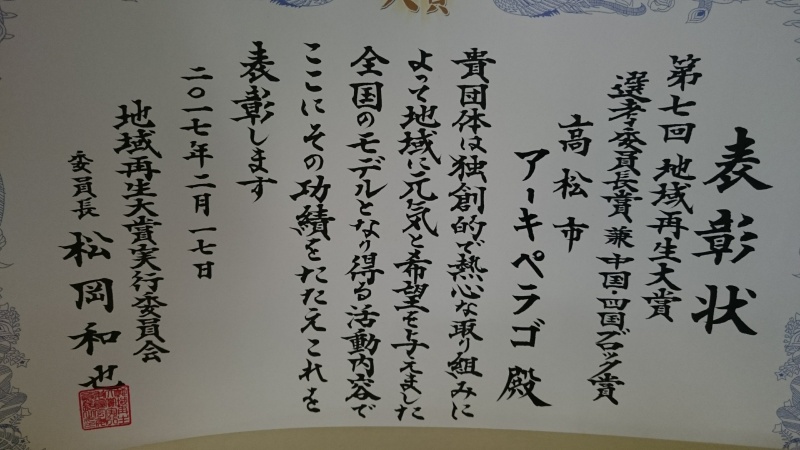 大賞
表彰状
第七回 地域再生大賞
選考委員長賞 兼 中国・四国ブロック賞
高松市
アーキペラゴ 殿
貴団体は独創的で熱心な取り組みに
よって地域に元気と希望を与えました
全国のモデルとなり得る活動内容で
ここにその功績をたたえこれを
表彰します
二〇一七年二月一七日
地域再生大賞実行委員会
委員長 松岡和也